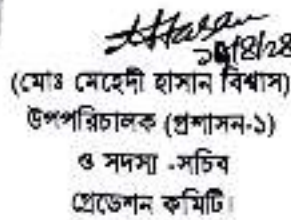 (মোঃ মেহেদী হাসান বিশ্বাস)
উপপরিচালক (প্রশাসন-১)
ও সদস্য -সচিব
গ্রেডেশন কমিটি।